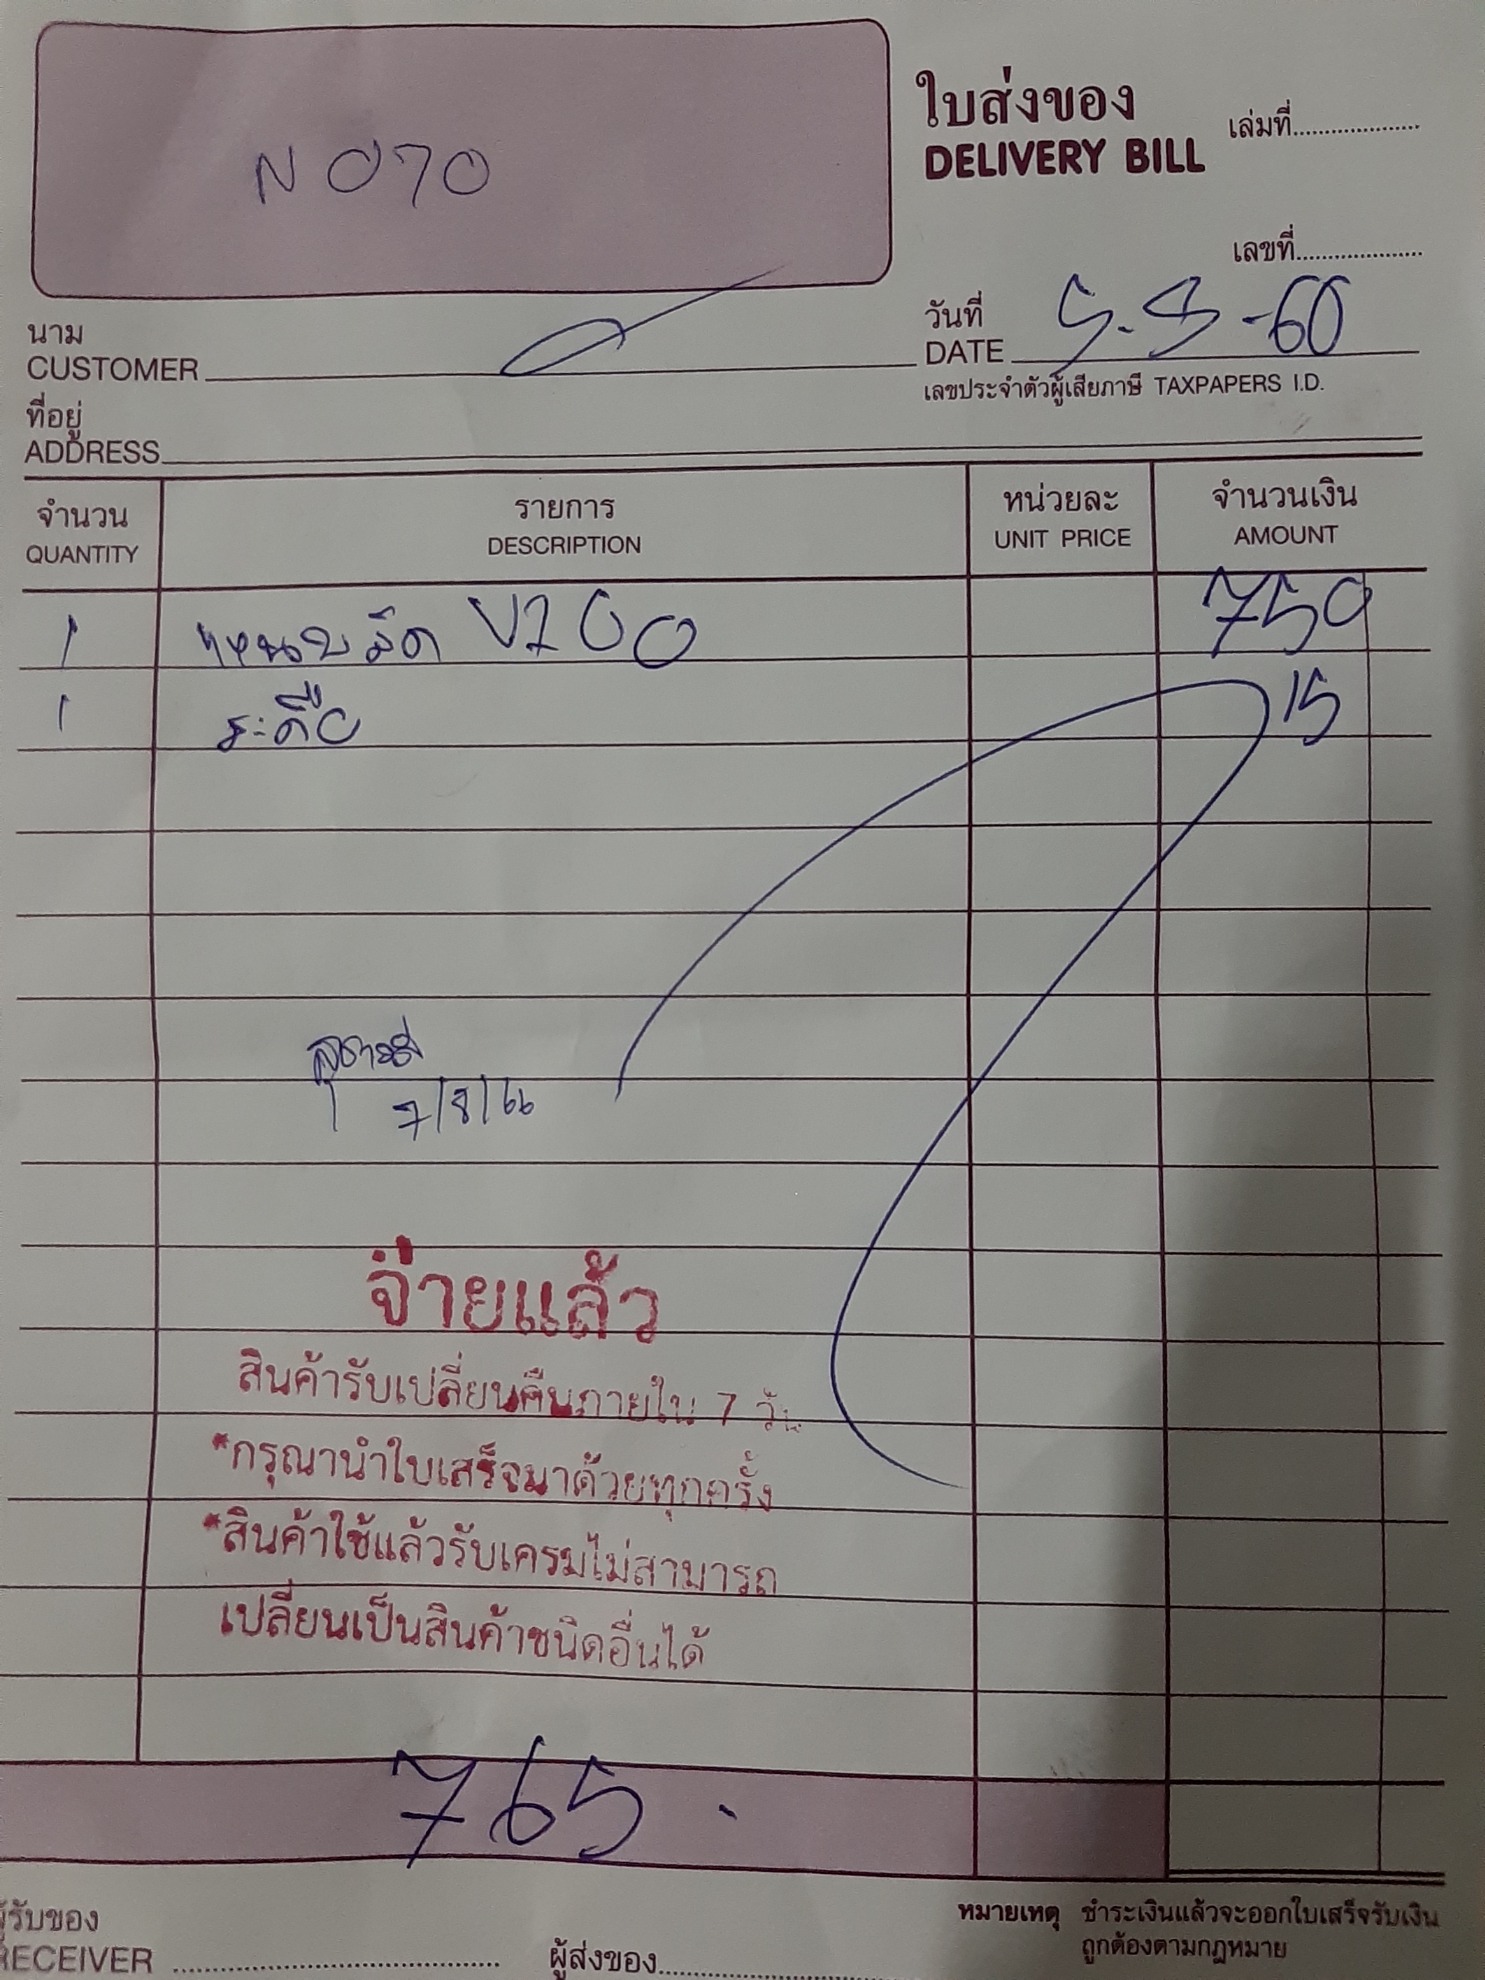 N 070
ใบส่งของ
DELIVERY BILL
เล่มที่
เลขที่
นาม
CUSTOMER
วันที่
DATE 5-8-60
เลขประจำตัวผู้เสียภาษี TAXPAPERS I.D.
ที่อยู่
ADDRESS
จำนวน รายการ หน่วยละ จำนวนเงิน
QUANTITY DESCRIPTION UNIT PRICE AMOUNT
1 แหนบมัด 750
1 15
7/8/66
จ่ายแล้ว
สินค้ารับเปลี่ยนคืนภายใน 7 วัน
*กรุณานำใบเสร็จมาด้วยทุกครั้ง
*สินค้าใช้แล้วรับเครมไม่สามารถ
เปลี่ยนเป็นสินค้าชนิดอื่นได้
765.
ผู้รับของ
RECEIVER
ผู้ส่งของ
หมายเหตุ ชำระเงินแล้วจะออกใบเสร็จรับเงิน
ถูกต้องตามกฎหมาย